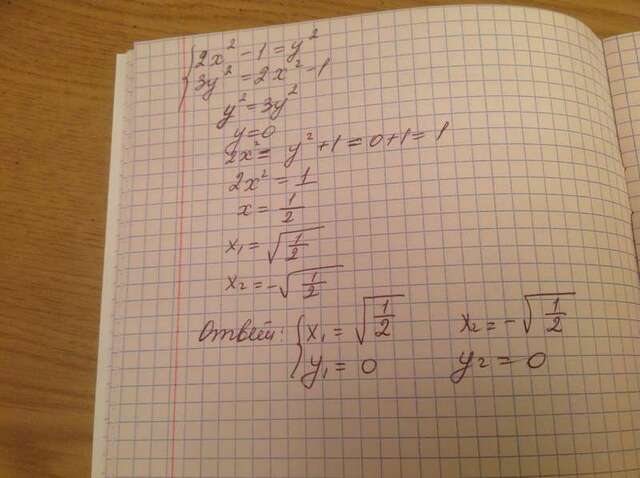 {2x² - 1 = y²
3y² = 2x² - 1
y² = 3y²
y = 0
2x² = y² + 1 = 0 + 1 = 1
2x² = 1
x = 1/2
x₁ = √(1/2)
x₂ = -√(1/2)
Ответ: {x₁ = √(1/2) x₂ = -√(1/2)
y₁ = 0 y₂ = 0